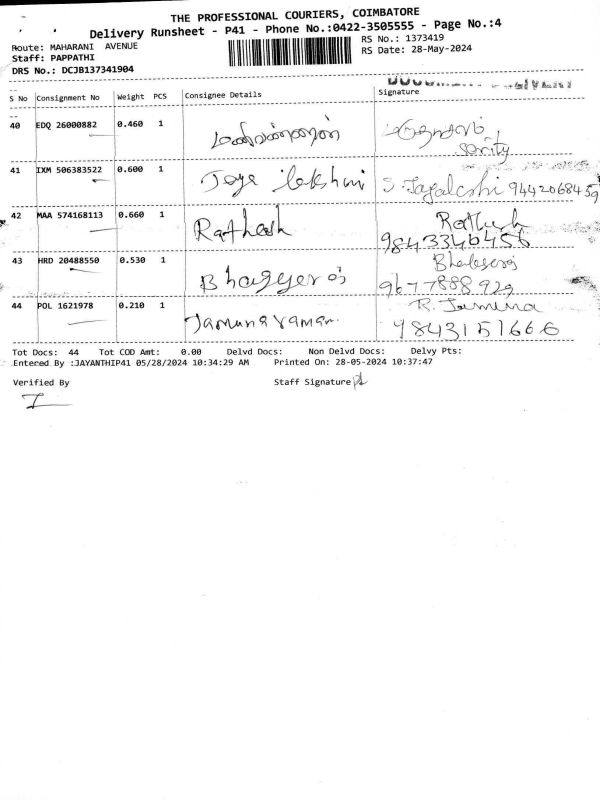 THE PROFESSIONAL COURIERS, COIMBATORE
Delivery Runsheet - P41 - Phone No.:0422-3505555 - Page No.:4
Route: MAHARANI AVENUE
RS No.: 1373419
Staff: PAPPATHI
RS Date: 28-May-2024
DRS No.: DCJB137341904
S No Consignment No Weight PCS Consignee Details Signature
40 EDQ 26000882 0.460 1
41 IXM 506383522 0.600 1 Jaya lakshmi S. 9442068459
42 MAA 574168113 0.660 1 Rathesh
9843346456
43 HRD 20488550 0.530 1
9677888929
44 POL 1621978 0.210 1 Jamunaraman. R. Jamuna
9843151666
Tot Docs: 44 Tot COD Amt: 0.00 Delvd Docs: Non Delvd Docs: Delvy Pts:
Entered By :JAYANTHIP41 05/28/2024 10:34:29 AM Printed On: 28-05-2024 10:37:47
Verified By Staff Signature